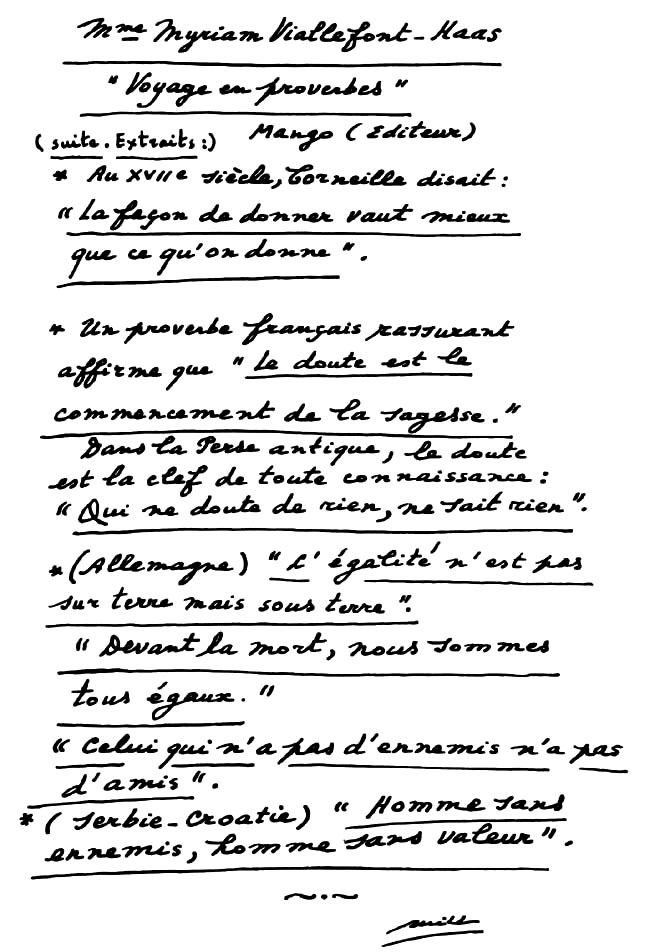 Mme Myriam Viallefont-Haas
"Voyage en proverbes"
Mango (Editeur)
(suite. Extraits:)
* Au XVIIe siècle, Corneille disait :
" La façon de donner vaut mieux
que ce qu'on donne ".
* Un proverbe français rassurant
affirme que " Le doute est le
commencement de la sagesse."
Dans la Perse antique, le doute
est la clef de toute connaissance :
" Qui ne doute de rien, ne sait rien ".
* (Allemagne) " L'égalité n'est pas
sur terre mais sous terre ".
" Devant la mort, nous sommes
tous égaux. "
" Celui qui n'a pas d'ennemis n'a pas
d'amis ".
* ( Serbie-Croatie) " Homme sans
ennemis, homme sans valeur ".
~.~
suite